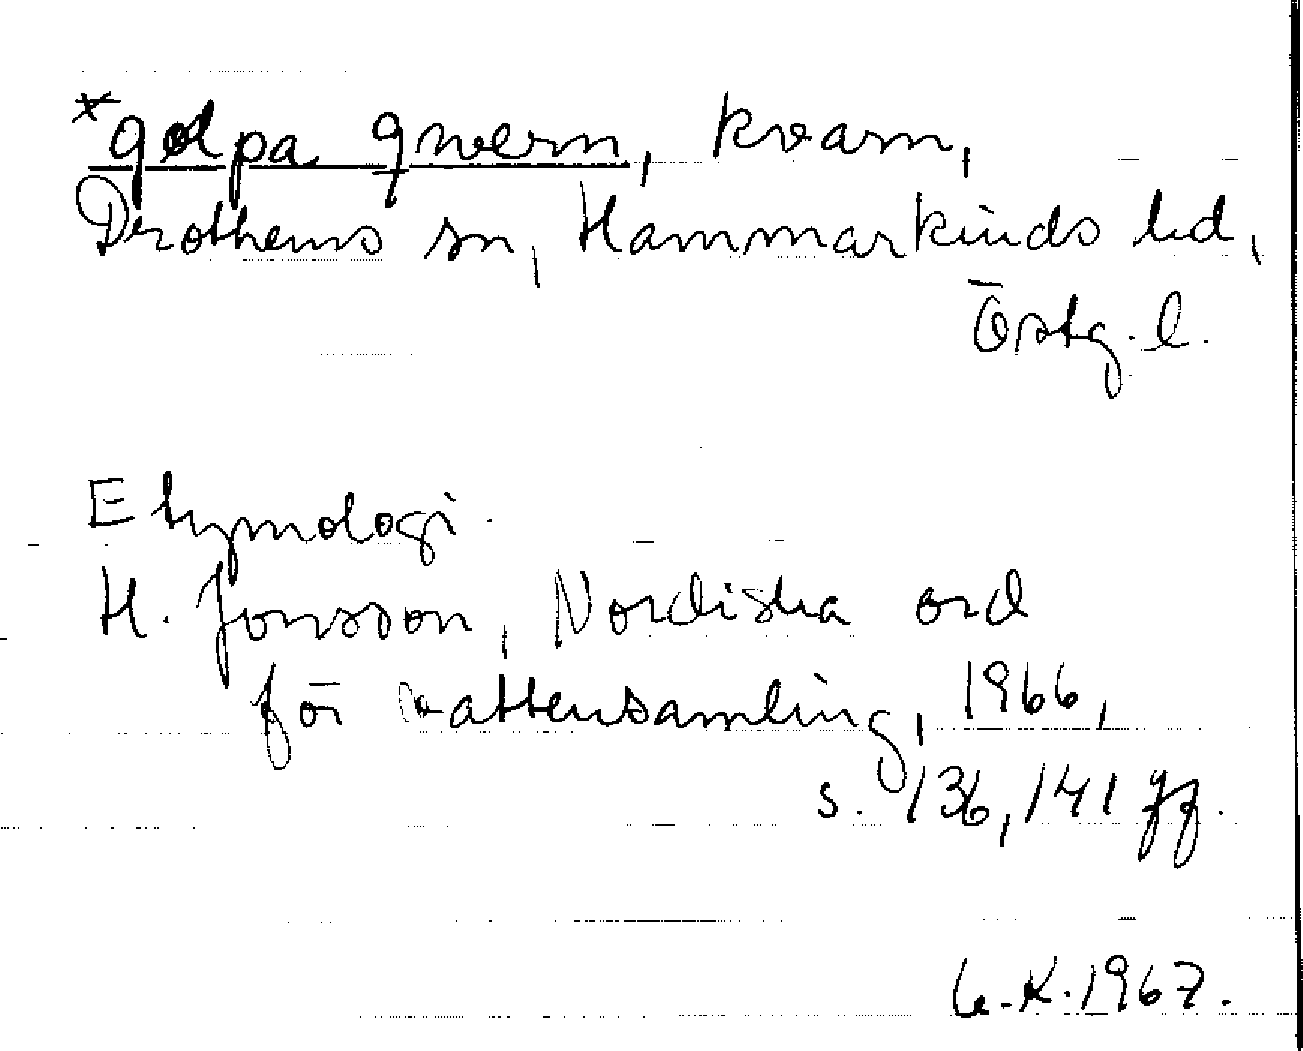 *gølpa qwern, kvarn,
Drothems sn, Hammarkinds hd,
Östg. l.
Etymologi.
H. Jonsson, Nordiska ord
för vattensamling, 1966,
s. 136, 141 ff.
K. 1967.